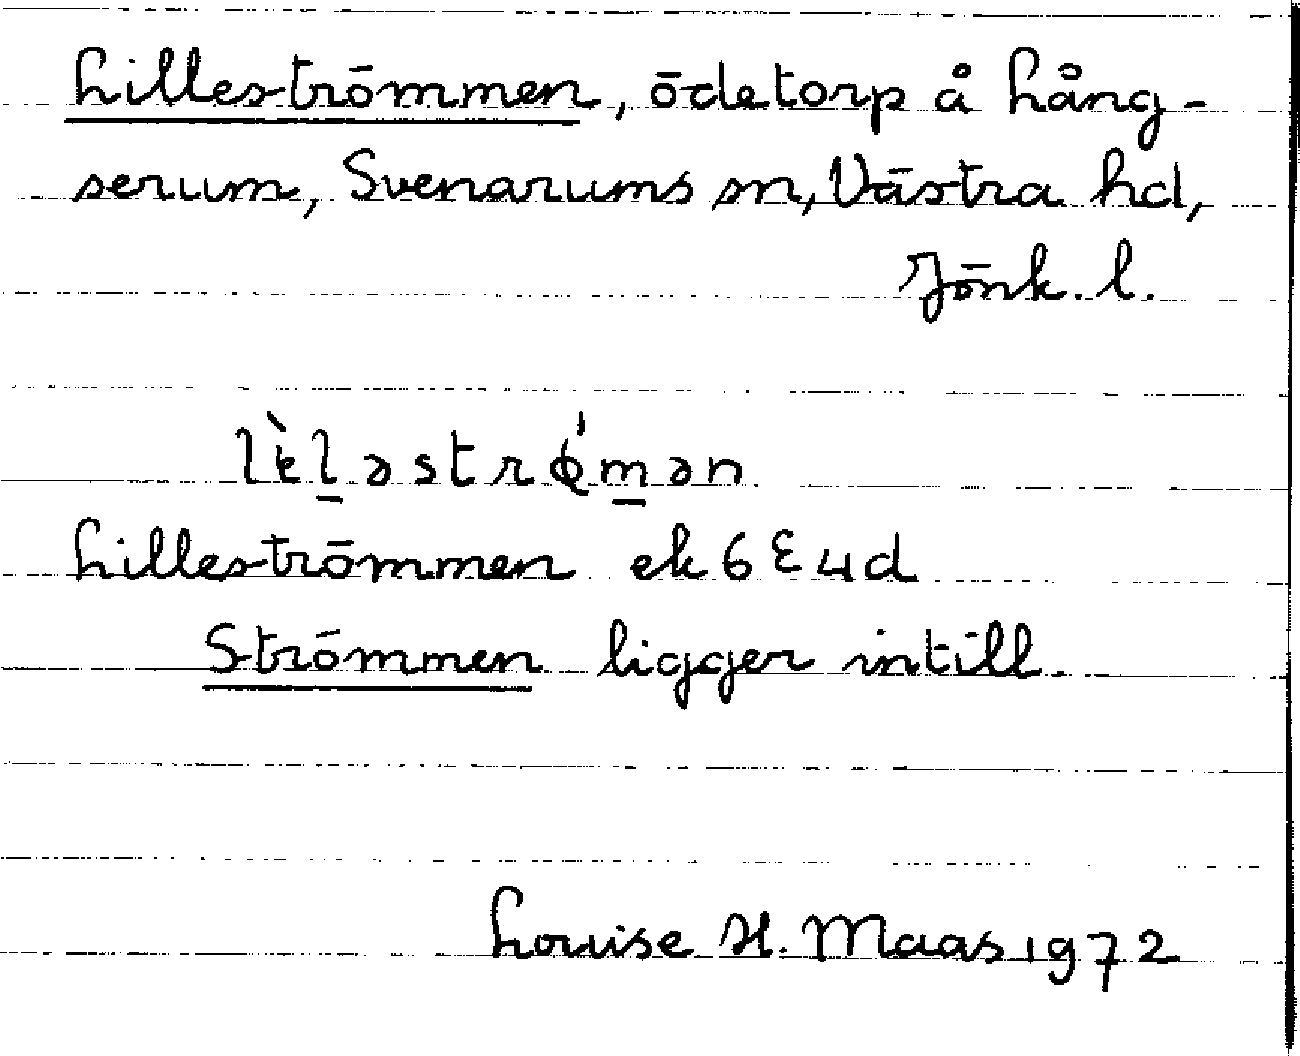 Lilleströmmen, ödetorp å Lång-
serum, Svenarums sn, Västra hd,
Jönk. l.
lèl̲əstrǿm̲ən
Lilleströmmen ek 6 E 4 d
Strömmen ligger intill.
Louise H. Maas 1972